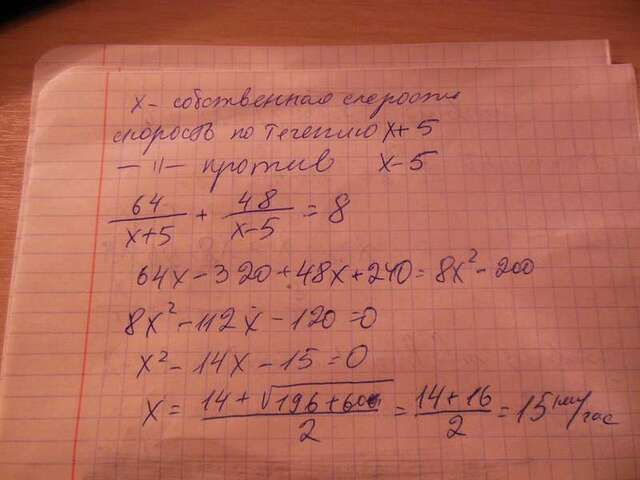 x - собственная скорость
скорость по течению x+5
— " — против x-5
64/(x+5) + 48/(x-5) = 8
64x - 320 + 48x + 240 = 8x² - 200
8x² - 112x - 120 = 0
x² - 14x - 15 = 0
x = (14 + √(196+60))/2 = (14+16)/2 = 15 км/час